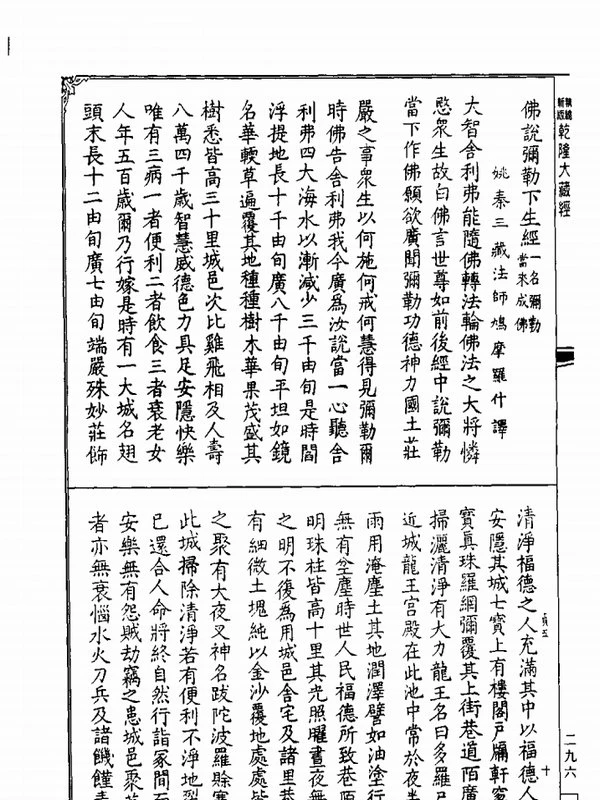 乾隆大藏經
佛說彌勒下生經一名彌勒
當來成佛
姚秦三藏法師鳩摩羅什譯
大智舍利弗能隨佛轉法輪佛法之大將憐
愍衆生故白佛言世尊如前後經中說彌勒
當下作佛願欲廣聞彌勒功德神力國土莊
嚴之事衆生以何施何戒何慧得見彌勒爾
時佛告舍利弗我今廣爲汝說當一心聽舍
利弗四大海水以漸減少三千由旬是時閻
浮提地長十千由旬廣八千由旬平坦如鏡
名華輭草遍覆其地種種樹木華果茂盛其
樹悉皆高三十里城邑次比雞飛相及人壽
八萬四千歲智慧威德色力具足安隱快樂
唯有三病一者便利二者飲食三者衰老女
人年五百歲爾乃行嫁是時有一大城名翅
頭末長十二由旬廣七由旬端嚴殊妙莊飾
二九六
十
清淨福德之人充滿其中以福德人
安隱其城七寶上有樓閣戶牖軒窓
寶真珠羅網彌覆其上街巷道陌廣
掃灑清淨有大力龍王名曰多羅尸
近城龍王宮殿在此池中常於夜半
雨用淹塵土其地潤澤譬如油塗行
無有坌塵時世人民福德所致巷陌
明珠柱皆高十里其光照曜晝夜無
之明不復爲用城邑舍宅及諸里巷
有細微土塊純以金沙覆地處處皆
之聚有大夜叉神名跋陀波羅賒塞
此城掃除清淨若有便利不淨地裂
已還合人命將終自然行詣冢間而
安樂無有怨賊劫竊之患城邑聚落
者亦無衰惱水火刀兵及諸饑饉毒